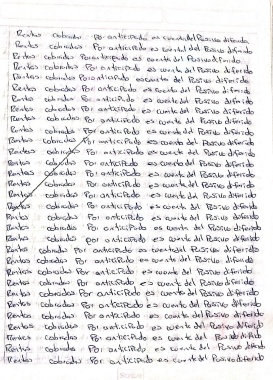 Rentas cobradas Por anticipado es cuenta del Pasivo diferido
Rentas cobradas Por anticipado es cuenta del Pasivo diferido
Rentas cobradas Por anticipado es cuenta del Pasivo diferido
Rentas cobradas Por anticipado es cuenta del Pasivo diferido
Rentas cobradas Por anticipado es cuenta del Pasivo diferido
Rentas cobradas Por anticipado es cuenta del Pasivo diferido
Rentas cobradas Por anticipado es cuenta del Pasivo diferido
Rentas cobradas Por anticipado es cuenta del Pasivo diferido
Rentas cobradas Por anticipado es cuenta del Pasivo diferido
Rentas cobradas Por anticipado es cuenta del Pasivo diferido
Rentas cobradas Por anticipado es cuenta del Pasivo diferido
Rentas cobradas Por anticipado es cuenta del Pasivo diferido
Rentas cobradas Por anticipado es cuenta del Pasivo diferido
Rentas cobradas Por anticipado es cuenta del Pasivo diferido
Rentas cobradas Por anticipado es cuenta del Pasivo diferido
Rentas cobradas Por anticipado es cuenta del Pasivo diferido
Rentas cobradas Por anticipado es cuenta del Pasivo diferido
Rentas cobradas Por anticipado es cuenta del Pasivo diferido
Rentas cobradas Por anticipado es cuenta del Pasivo diferido
Rentas cobradas Por anticipado es cuenta del Pasivo diferido
Rentas cobradas Por anticipado es cuenta del Pasivo diferido
Rentas cobradas Por anticipado es cuenta del Pasivo diferido
Rentas cobradas Por anticipado es cuenta del Pasivo diferido
Rentas cobradas Por anticipado es cuenta del Pasivo diferido
Rentas cobradas Por anticipado es cuenta del Pasivo diferido
Rentas cobradas Por anticipado es cuenta del Pasivo diferido
Rentas cobradas Por anticipado es cuenta del Pasivo diferido
Rentas cobradas Por anticipado es cuenta del Pasivo diferido
Rentas cobradas Por anticipado es cuenta del Pasivo diferido